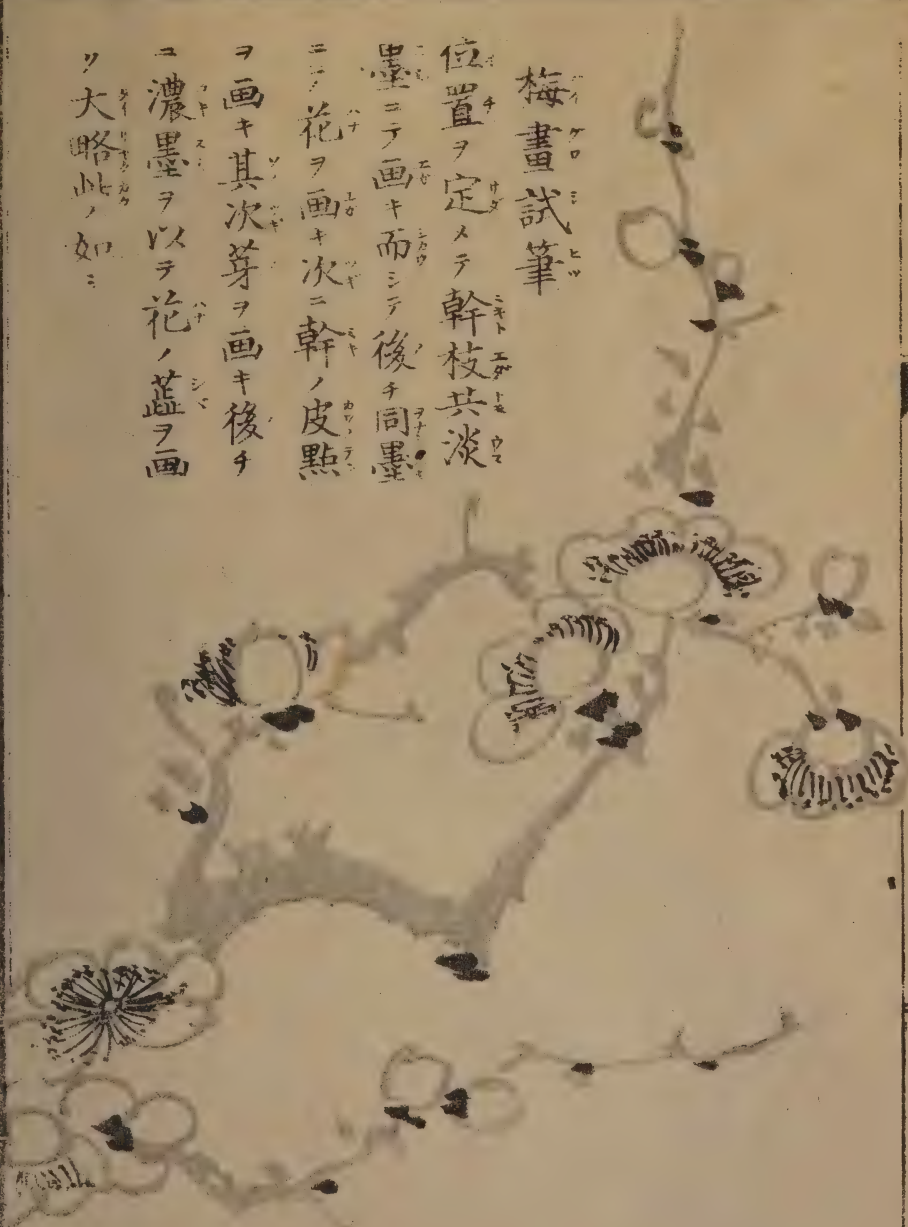 梅畫試筆
位置ヲ定メテ幹枝共淡
墨ニテ画キ而シテ後チ同墨
ニテ花ヲ画キ次ニ幹ノ皮點
ヲ画キ其次芽ヲ画キ後チ
ニ濃墨ヲ以テ花ノ蕋ヲ画
リ大略此ノ如ミ